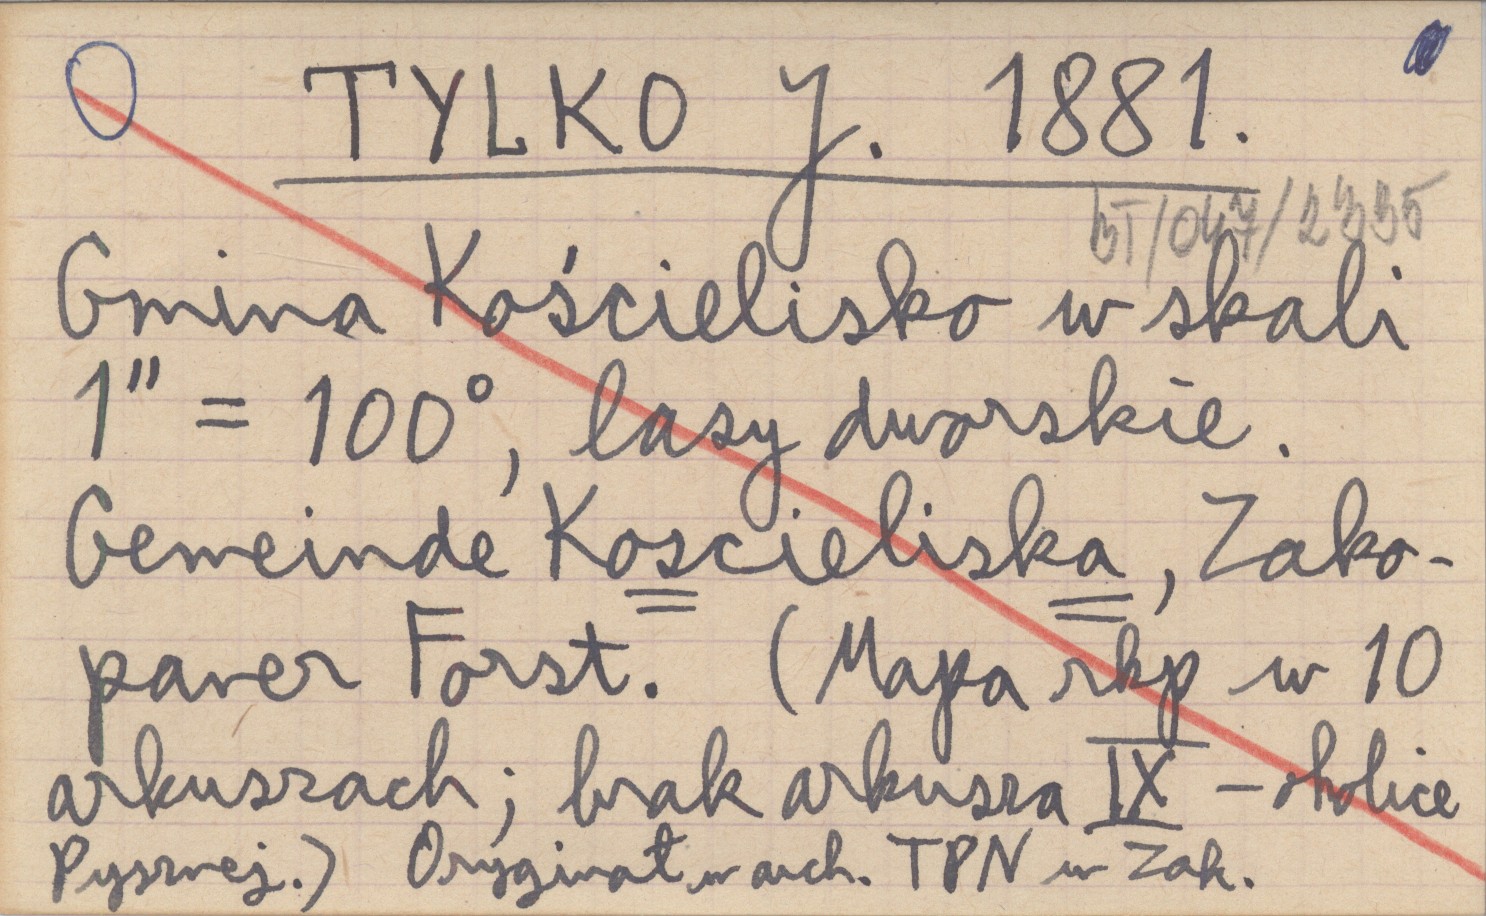 TYLKO J. 1881.
BT/047/2335
Gmina Kościelisko w skali
1" = 100°, lasy dworskie.
Gemeinde Koscieliska, Zako-
paner Forst. (Mapa rkp w 10
arkuszach; brak arkusza IX – okolice
Pysznej.) Oryginał w arch. TPN w Zak.